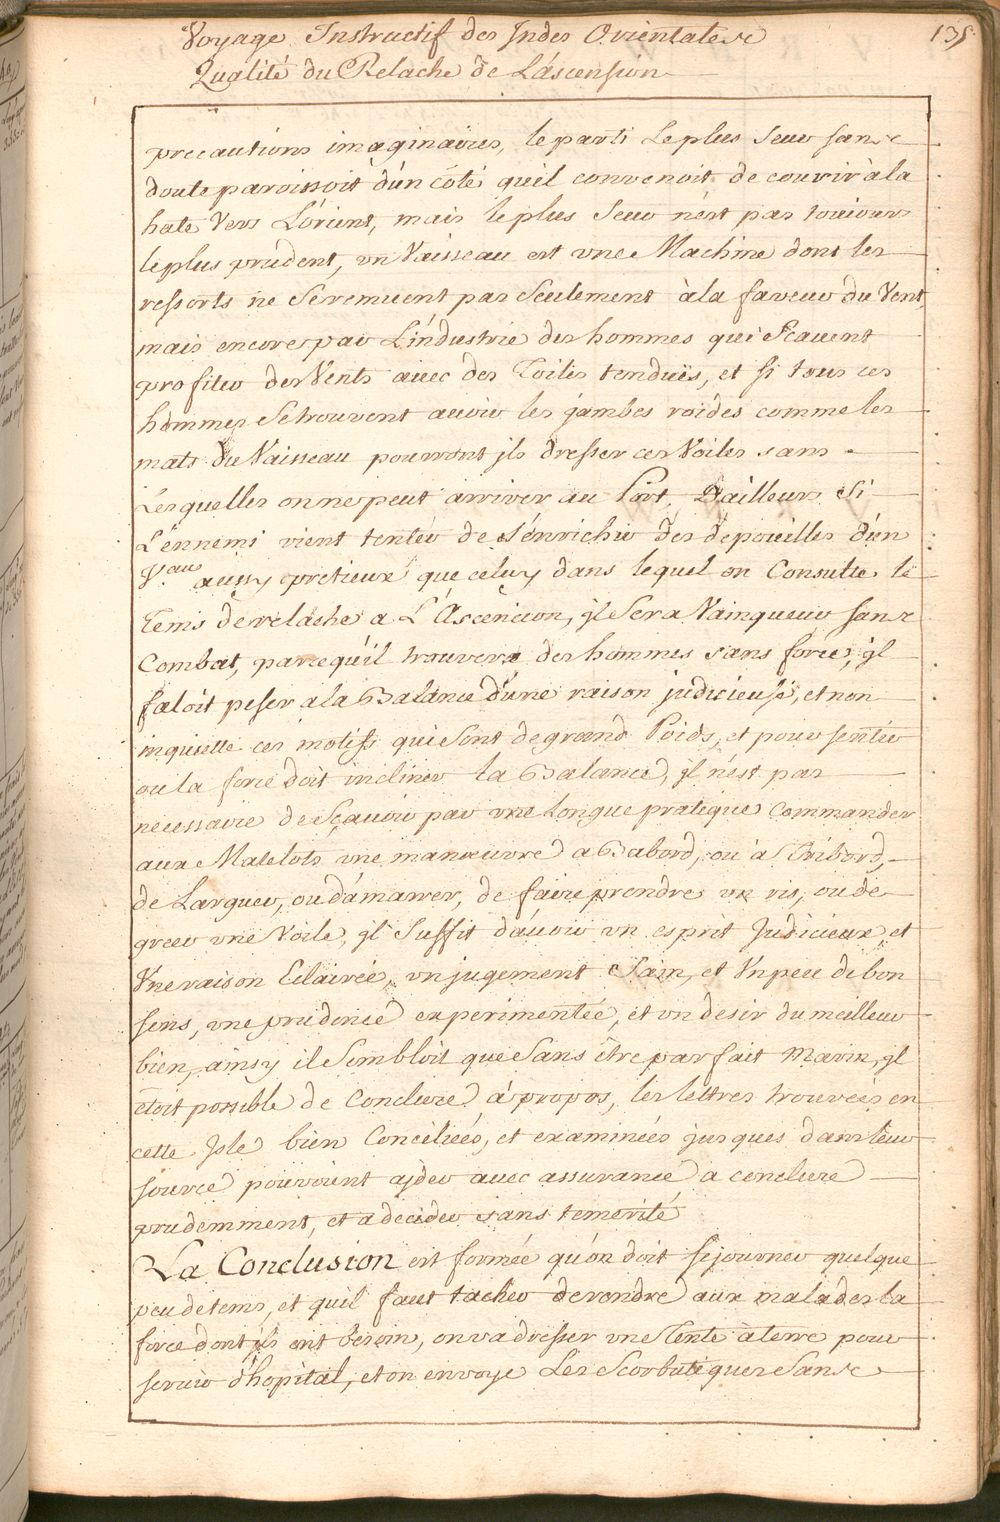 Voyage Instructif des Indes Orientales
135.
Qualité du Relache de L'áscension
precautions imaginaires, le parti Le plus Seur sans
doute paroissoit d'ún coté quil convenoit de courir à la
hate Vers L'órient, mais le plus Seur n'ést pas toujours
le plus prudent, un Vaisseau est une Machine dont les
ressorts ne Se remuent pas Seulement à la faveur du Vent,
mais encore par L'índustrie des hommes qui Scavent
profiter des Vents avec des Toiles tenduës, et si tous ces
hommes Se trouvent avoir les jambes roides comme les
mats du Vaisseau pourront jls dresser ces Voiles sans
Lesquelles on ne peut arriver au Port, D'ailleurs Si
L'énnemi vient tenter de s'énrichir des depoüilles d'ún
V.eau aussy pretieux que celuy dans lequel on Consulte le
Tems de relâche a L'Ascencion, jl Sera Vainqueur sans
Combat, parcequ'il trouvera des hommes sans force; jl
faloit peser a la Balance d'úne raison judicieuse, et non
inquiette ces motifs qui Sont de grand Poids, et pour sentir
ou la force doit incliner la Balance, jl n'est pas
necessaire de Sçavoir par une Longue pratique Commander
aux Matelots une manœuvre a Babord, ou a Tribord,
de Larguer, ou d'ámarrer, de faire prendre un ris, ou de
greer une Voile, jl Suffit d'ávoir un esprit Judicieux et
Une raison Eclairée, un jugement Sain, et Un peu de bon
sens, une prudence experimentée, et un desir du meilleur
bien, ainsy il Sembloit que Sans être parfait Marin, jl
étoit possible de Conclure à propos, les lettres trouvées en
cette Isle bien Conciliées, et examinées jusques dans leur
source pouvoient ajder avec assurance a conclure
prudemment, et a decider sans temerité
La Conclusion est formée qu'ón doit sejourner quelque
peu de tems, et quil faut tacher de rendre aux malades la
force dont jls ont besoin, on va dresser une Tente à terre pour
servir d'hopital, et on envoye Les Scorbutiques Sans